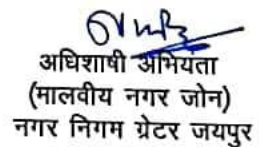 अधिशाषी अभियंता
(मालवीय नगर जोन)
नगर निगम ग्रेटर जयपुर